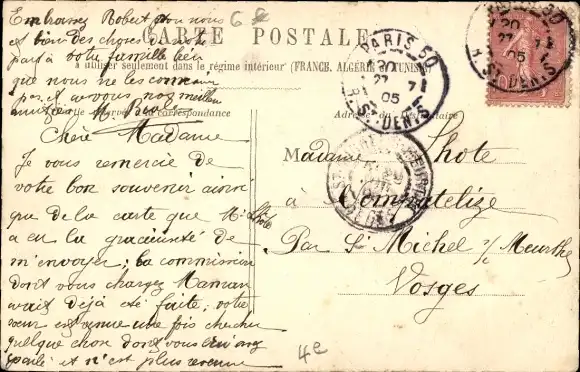 Embrassez Robert pour nous
et bien des choses de notre
part à votre famille bien
que nous ne les connaissons
pas et à vous nos meilleurs
amitiés M
CARTE POSTALE
à utiliser seulement dans le régime intérieur (FRANCE, ALGÉRIE & TUNISIE)
réservé à la correspondance
Adresse du destinataire
PARIS 50
20
27 7
05
R. ST DENIS
20
27 7
05
R. ST DENIS
Chère Madame
Je vous remercie de
votre bon souvenir ainsi
que de la carte que Mr Lhote
a eu la gracieuseté de
m'envoyer; la commission
dont vous chargez Maman
avait déjà été faite, votre
sœur est venue une fois chercher
quelque chose dont vous
parlé et n'est plus revenue
Madame Lhote
à Nompatelize
Par St Michel s/ Meurthe
Vosges
4e